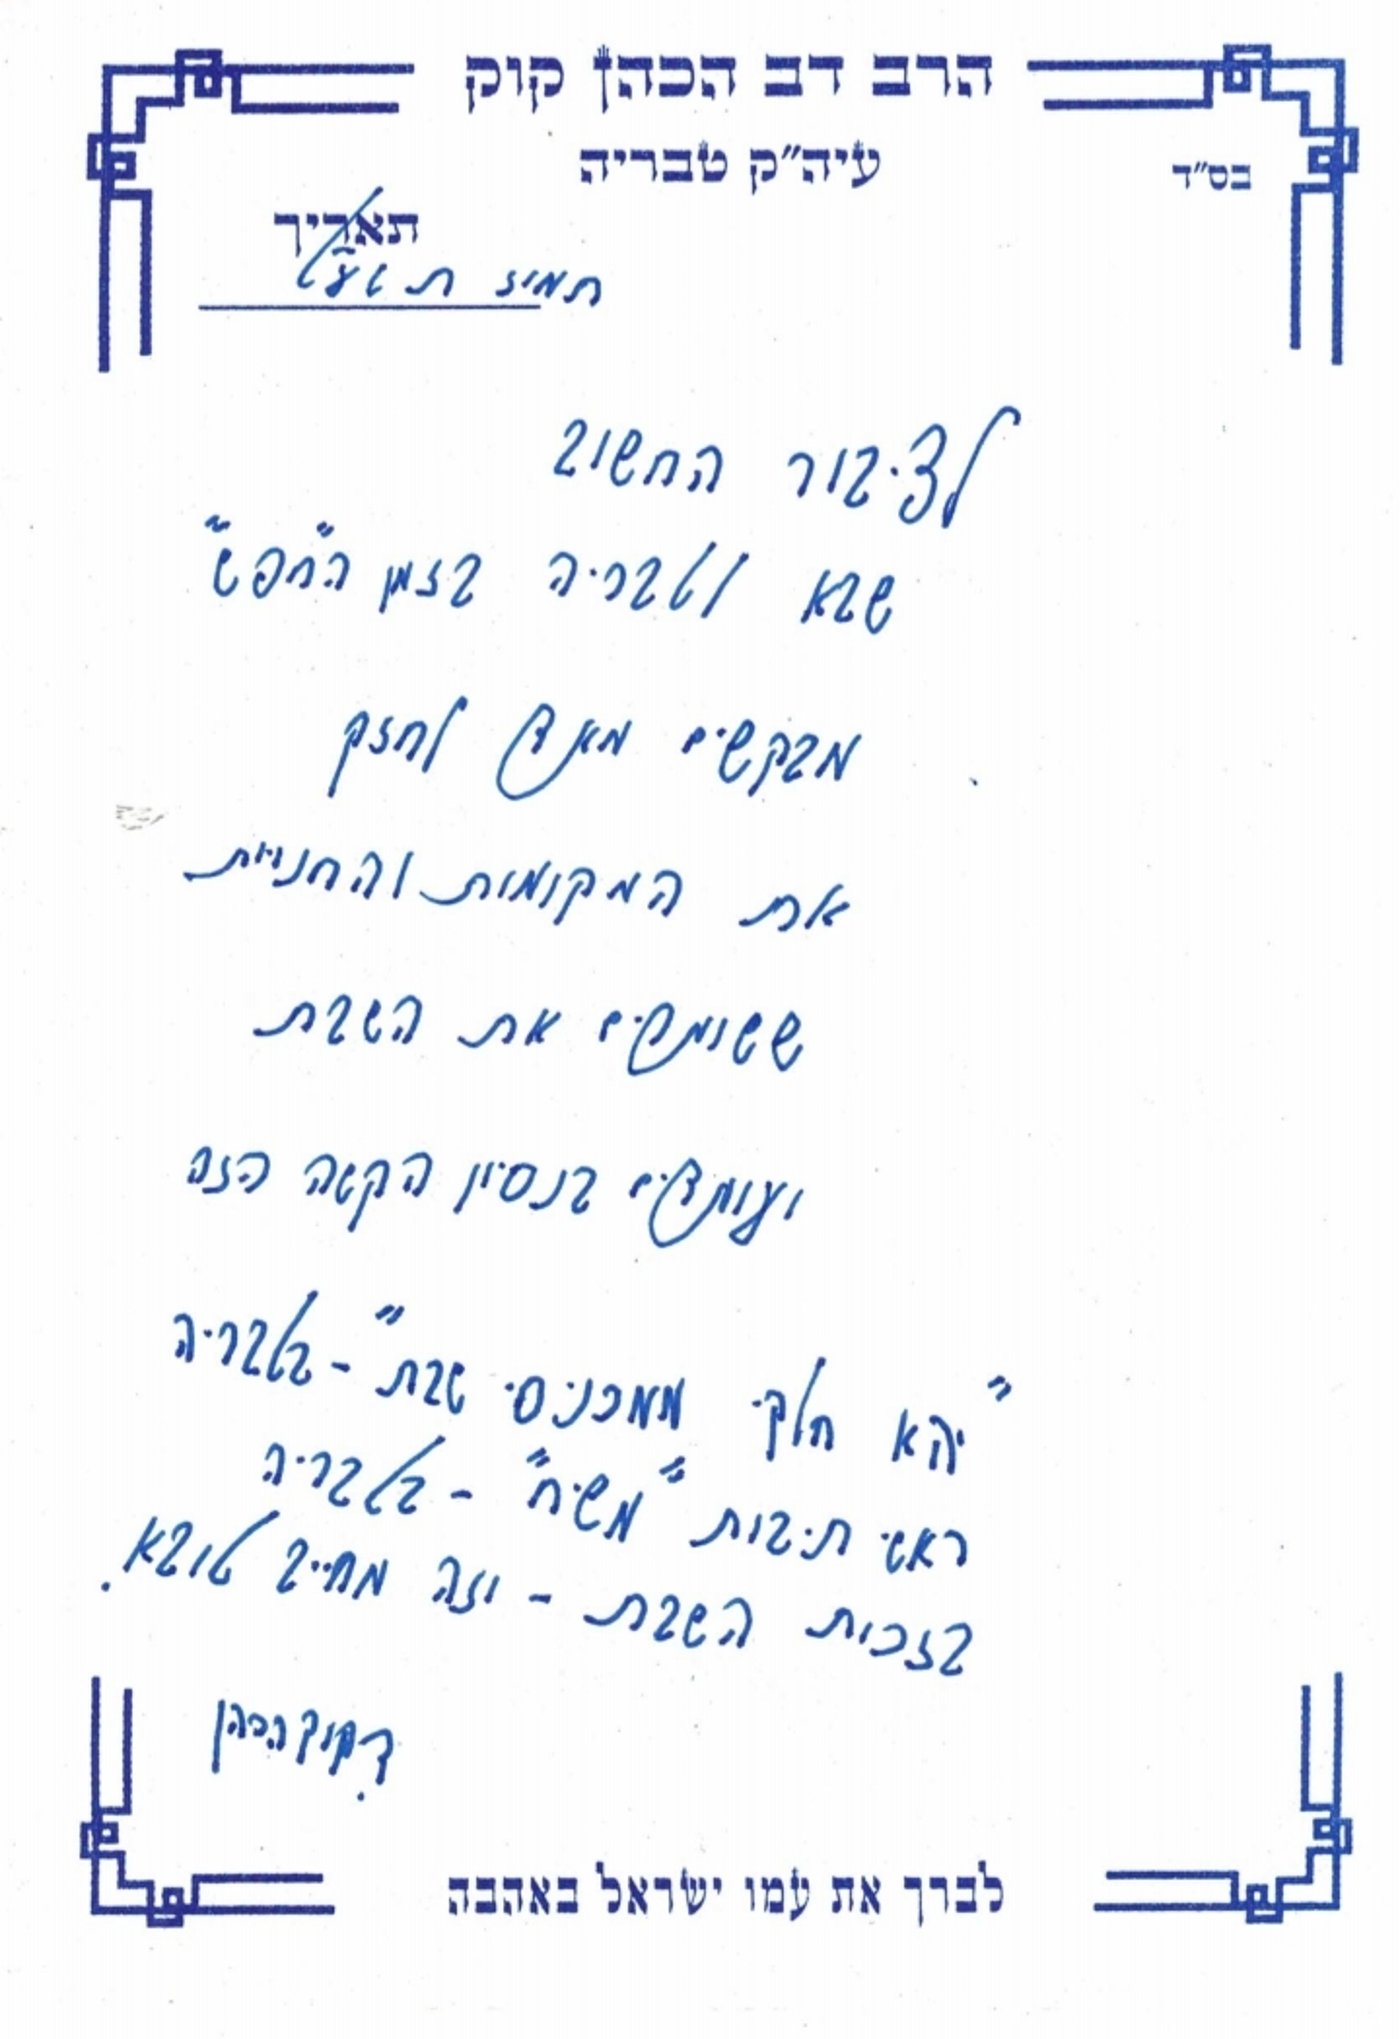 הרב דב הכהן קוק
עיה"ק טבריה
בס"ד
תאריך
תמיז ת
לציבור החשוב
שבא לטבריה בזמן ה"חפש"
מבקשים מאד לחזק
את המקומות והחניות
ששומרים את השבת
ועומדים בנסיון הקשה הזה
"יהא חלקי ממכניסי שבת" - בטבריה
ראשי תיבות "משיח" - בטבריה
בזכות השבת - וזה מחייב טובא.
ד. קוק הכהן
לברך את עמו ישראל באהבה